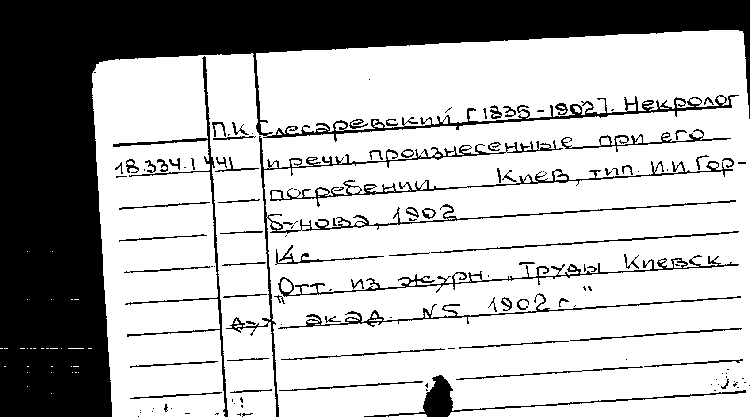 П.К. Слесаревский, [1835-1902]. Некролог
18.334.1.441 и речи, произнесенные при его
погребении. Киев, тип. И.И. Гор-
бунова, 1902
14 с.
"Отт. из журн. „Труды Киевск.
дух. акад., N5, 1902 г."